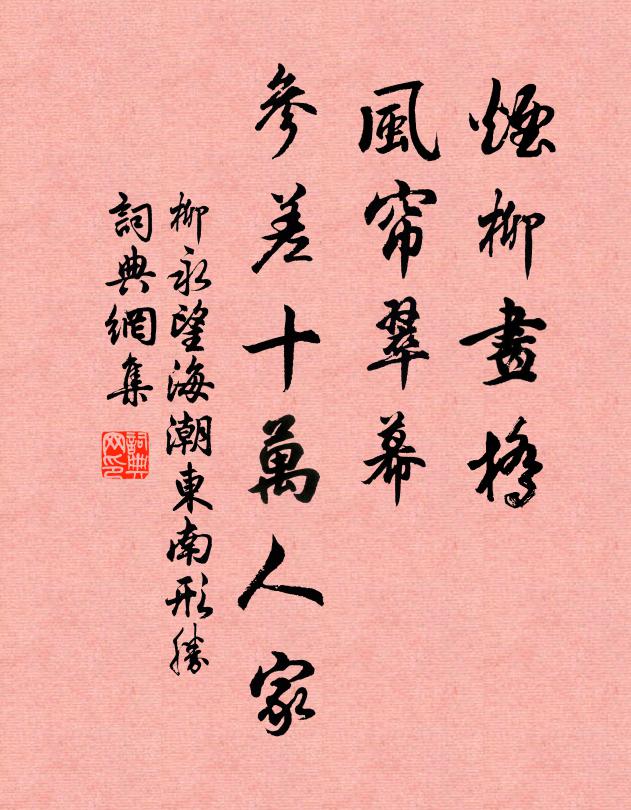 煙柳畫橋
風帘翠幕
參差十萬人家
柳永望海潮東南形勝
詞典網集
詞典網印